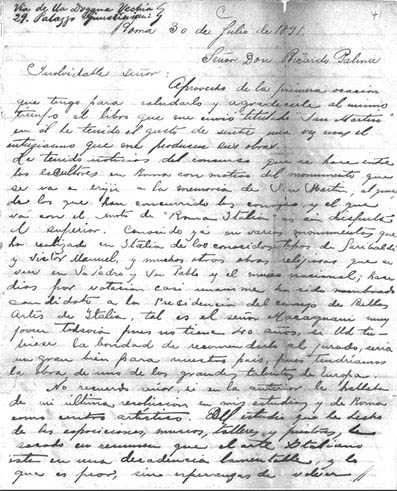 Via de lla Dogana Vecchia
29. Palazzo Giustiniani
Roma 30 de Julio de 1891.
Señor Don Ricardo Palma
Inolvidable Señor:
Aprovecho de la primera ocasion
que tengo para saludarlo y agradecerle al mismo
tiempo el libro que me envió titulado "San Martin"
en él he tenido el gusto de sentir una vez mas el
entusiasmo que me producen sus obras.
He tenido noticias del concurso que se hace entre
los escultores en Roma con motivo del monumento que
se va a erijir a la memoria de San Martin, algunos
de los que han concurrido los conozco y el que
vá con el mote de "Roma Italia" es sin disputa
el superior. Conocido yá en varios monumentos que
ha realizado en Italia de los conocidos tipos de Garibaldi
y Victor Manuel, y muchas otras obras religiosas que se
ven en San Pedro y San Pablo y el museo nacional; hace
dias por votacion casi unanime ha sido nombrado
candidato a la Presidencia del consejo de Bellas
Artes de Italia, tal es el señor Macagnani muy
joven todavia pues no tiene 40 años, si Ud tu-
biese la bondad de recomendarlo al jurado, seria
un gran bien para nuestro pais, pues tendriamos
la obra de uno de los grandes talentos de Europa.
No recuerdo señor, si en la anterior le hablaba
de mi última resolucion en mis estudios y de Roma
como centro artistico. Del estudio que he hecho
de las esposiciones, museos, talleres y pintores, he
sacado en resumen que el arte Italiano
esta en una decadencia lamentable, y lo
que es peor, sin esperanzas de volver